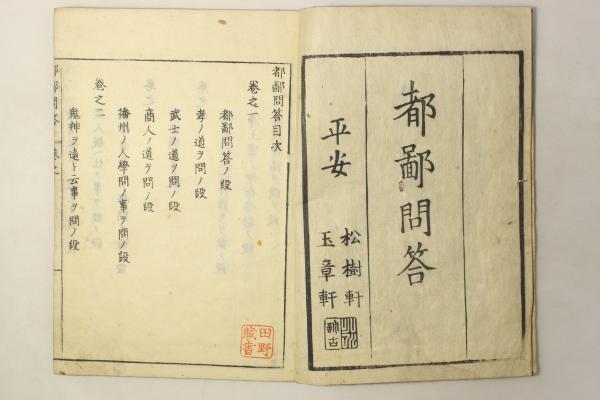 都鄙問答
平安
松樹軒
玉章軒
都鄙問答目次
巻之一
都鄙問答ノ段
孝ノ道ヲ問ノ段
武士ノ道ヲ問ノ段
商人ノ道ヲ問ノ段
播州ノ人學問ノ事ヲ問ノ段
巻之二
鬼神ヲ遠ト云事ヲ問ノ段
田野
藏書